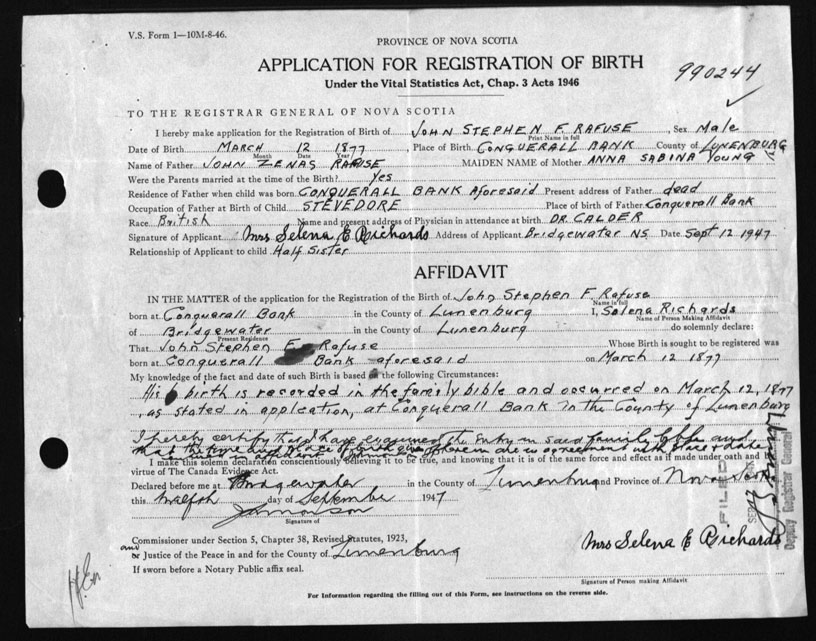 V.S. Form 1—10M-8-46.
PROVINCE OF NOVA SCOTIA
APPLICATION FOR REGISTRATION OF BIRTH
990244
Under the Vital Statistics Act, Chap. 3 Acts 1946
TO THE REGISTRAR GENERAL OF NOVA SCOTIA
I hereby make application for the Registration of Birth of JOHN STEPHEN F. RAFUSE, Sex Male
Print Name in full
Date of Birth MARCH 12 1877, Place of Birth CONQUERALL BANK County of LUNENBURG
Month Date Year
Name of Father JOHN ZENAS RAFUSE MAIDEN NAME of Mother ANNA SABINA YOUNG
Were the Parents married at the time of the Birth? Yes
Residence of Father when child was born CONQUERALL BANK aforesaid Present address of Father dead
Occupation of Father at Birth of Child STEVEDORE Place of birth of Father Conquerall Bank
Race British Name and present address of Physician in attendance at birth DR. CALDER
Signature of Applicant Mrs Selena E Richards Address of Applicant Bridgewater NS. Date Sept 12 1947
Relationship of Applicant to child Half Sister
AFFIDAVIT
IN THE MATTER of the application for the Registration of the Birth of John Stephen F. Rafuse
Name in full
born at Conquerall Bank in the County of Lunenburg I, Selena Richards
Name of Person Making Affidavit
of Bridgewater in the County of Lunenburg do solemnly declare:
Present Residence
That John Stephen F. Rafuse Whose Birth is sought to be registered was
born at Conquerall Bank aforesaid on March 12 1877
My knowledge of the fact and date of such Birth is based on the following Circumstances:
His birth is recorded in the family bible and occurred on March 12, 1877
, as stated in application, at Conquerall Bank in the County of Lunenburg
I hereby certify that I have examined the entry in said family bible and
that the time and place of birth given therein are in agreement with
I make this solemn declaration conscientiously believing it to be true, and knowing that it is of the same force and effect as if made under oath and by
virtue of The Canada Evidence Act.
Declared before me at Bridgewater in the County of Lunenburg and Province of Nova Scotia
this twelfth day of September 1947
Signature of
FILED
SEP
Deputy Registrar General
Commissioner under Section 5, Chapter 38, Revised Statutes, 1923,
and
or Justice of the Peace in and for the County of Lunenburg
If sworn before a Notary Public affix seal.
Mrs Selena E Richards
Signature of Person making Affidavit
For Information regarding the filling out of this Form, see instructions on the reverse side.